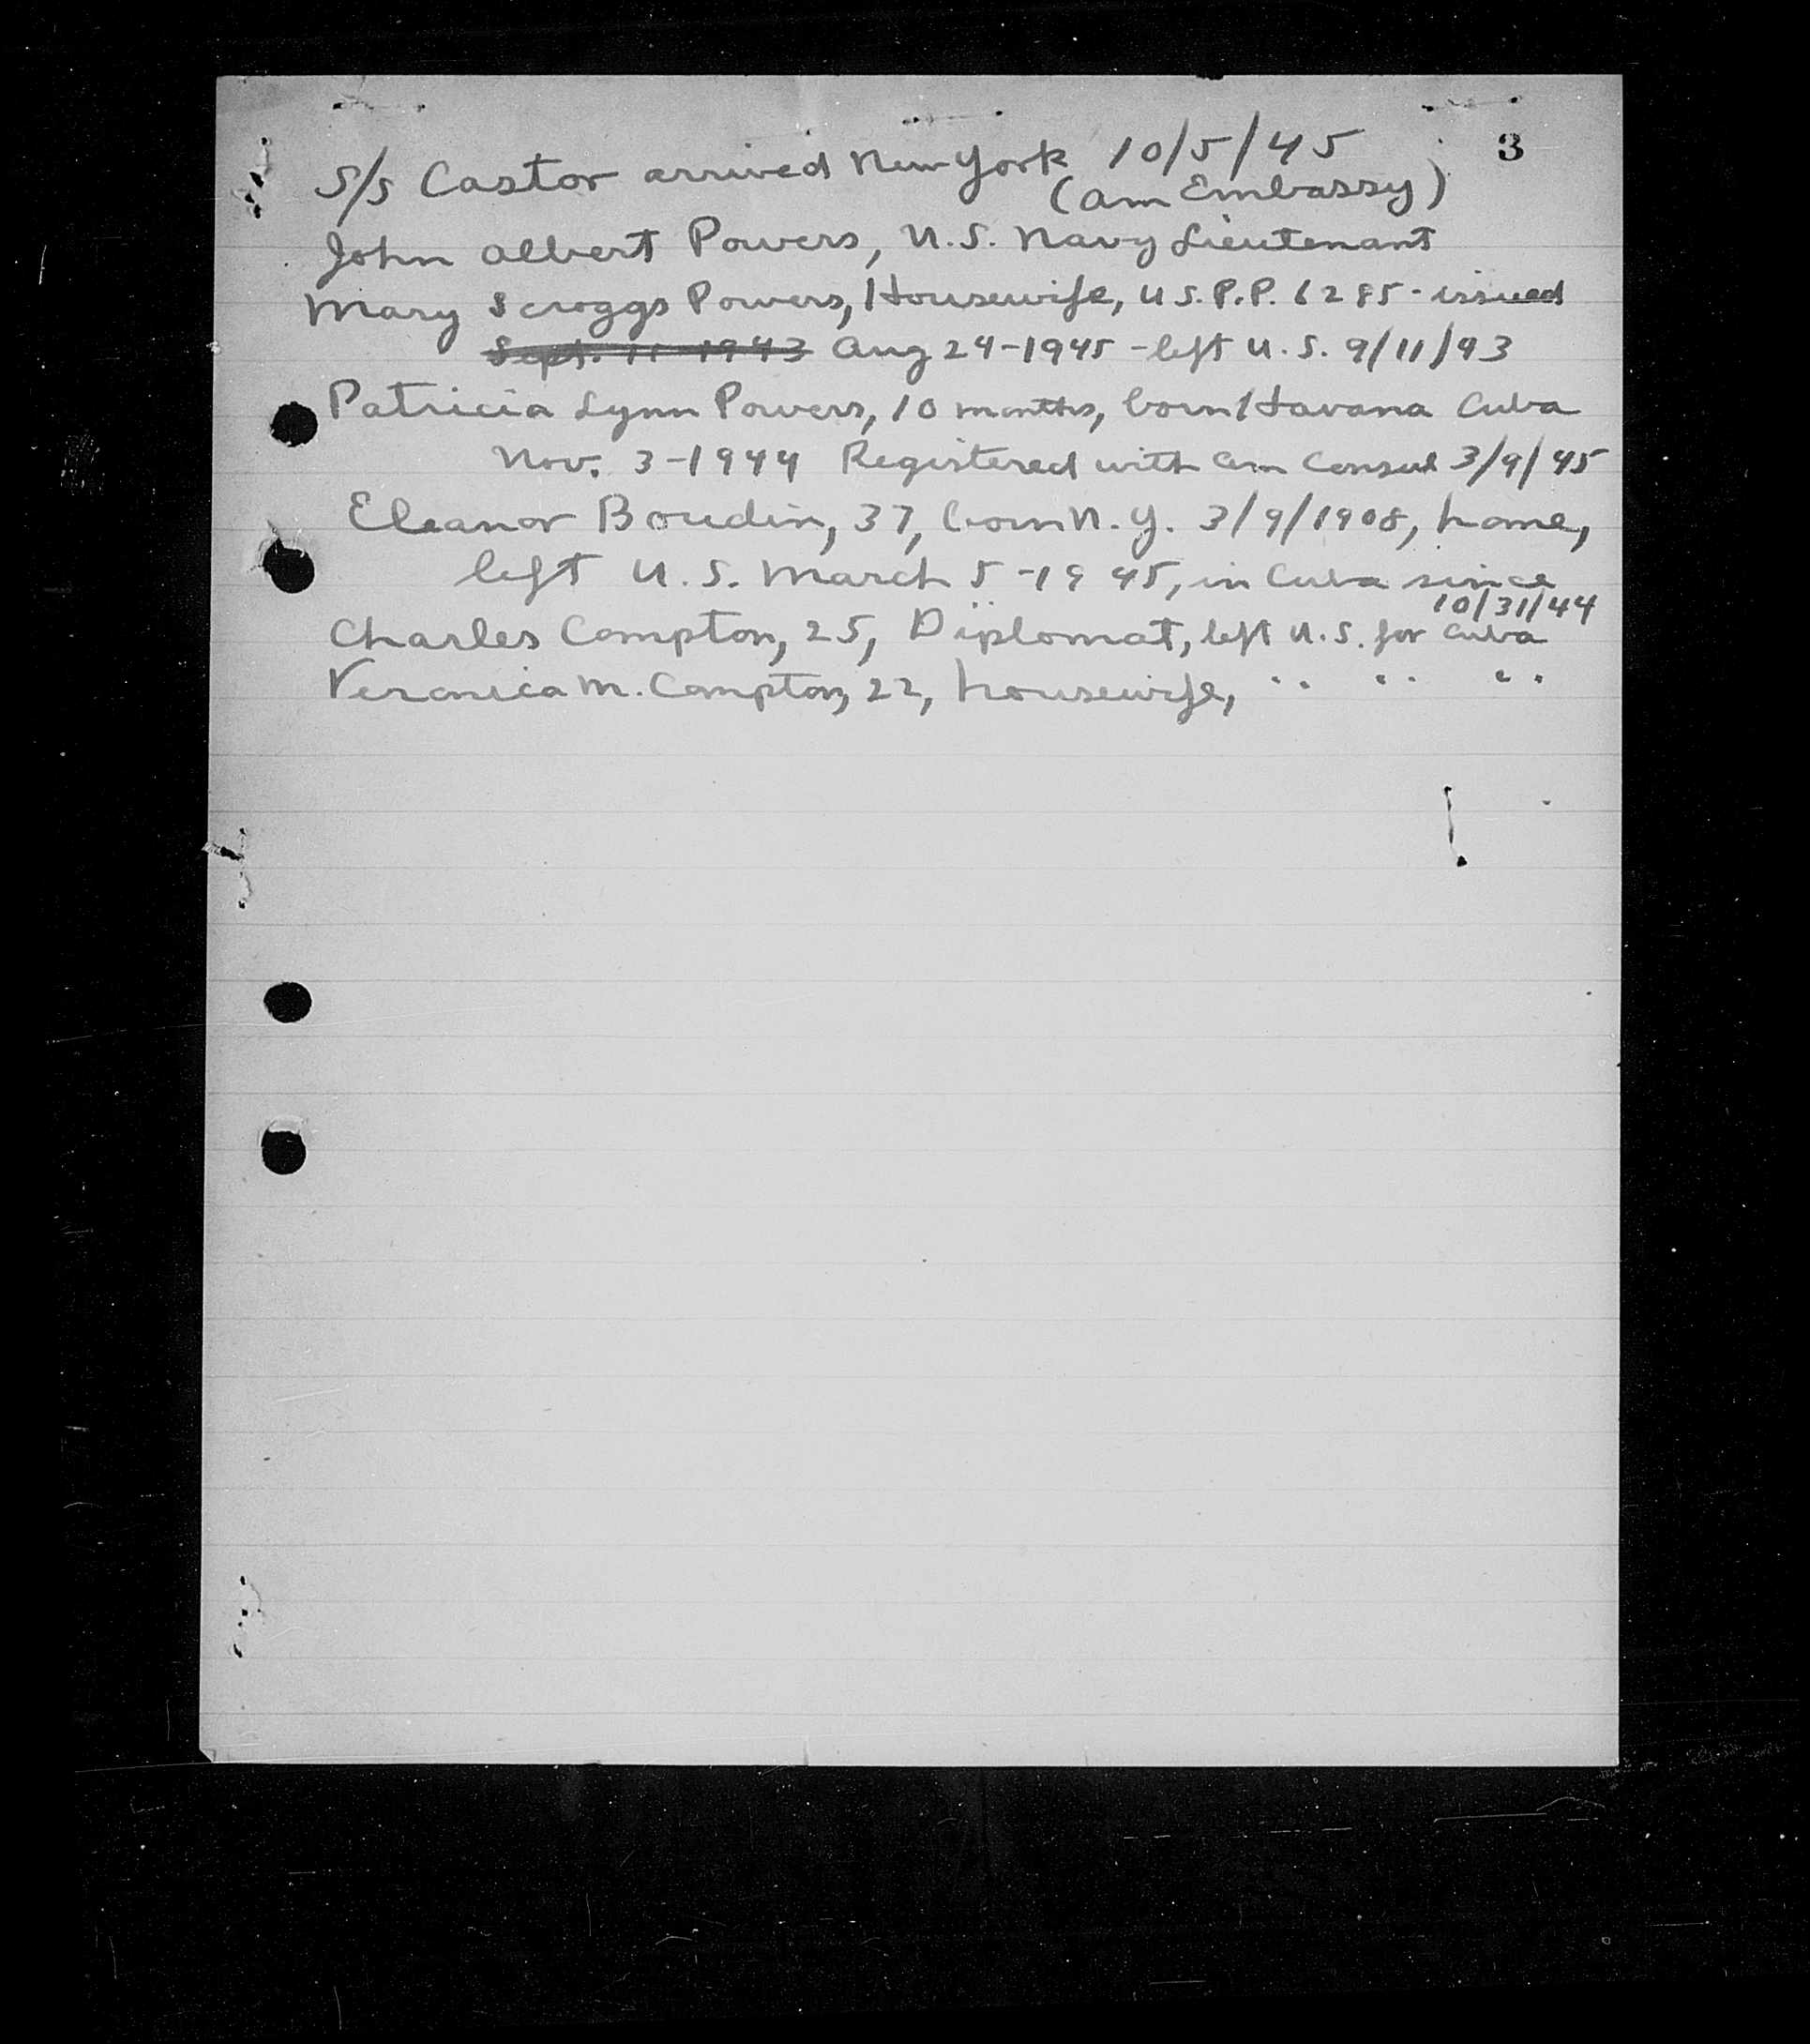 S/S Castor arrived New York 10/5/45 3
(Am Embassy)
John Albert Powers, U.S. Navy Lieutenant
Mary Scroggs Powers, Housewife, U.S.P.P. 6285 - issued
Sept. 11 1943 Aug 24-1945 - left U.S. 9/11/43
Patricia Lynn Powers, 10 months, born Havana Cuba
Nov. 3-1944 Registered with Am Consul 3/9/45
Eleanor Boudin, 37, born N.Y. 3/9/1908, home,
left U.S. March 5-1945, in Cuba since
10/31/44
Charles Compton, 25, Diplomat, left U.S. for Cuba
Veronica M. Compton, 22, housewife, " " "